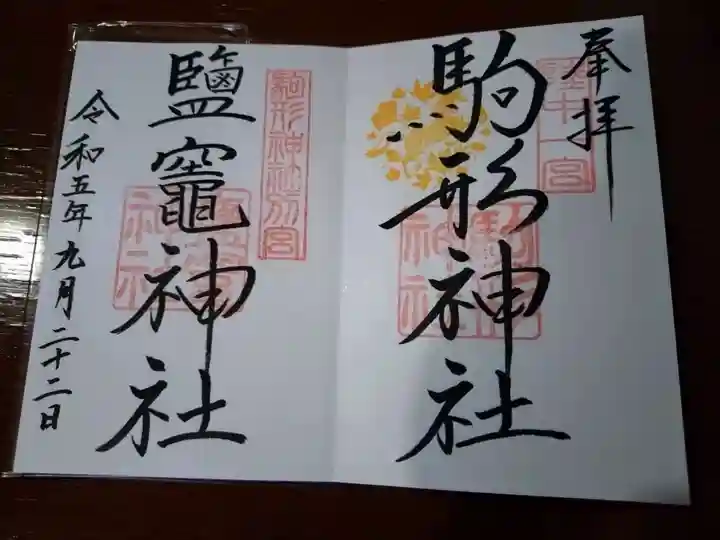 奉拝
陸中一宮
駒形神社
駒形神社
駒形神社別宮
鹽竈神社
令和五年九月二十二日